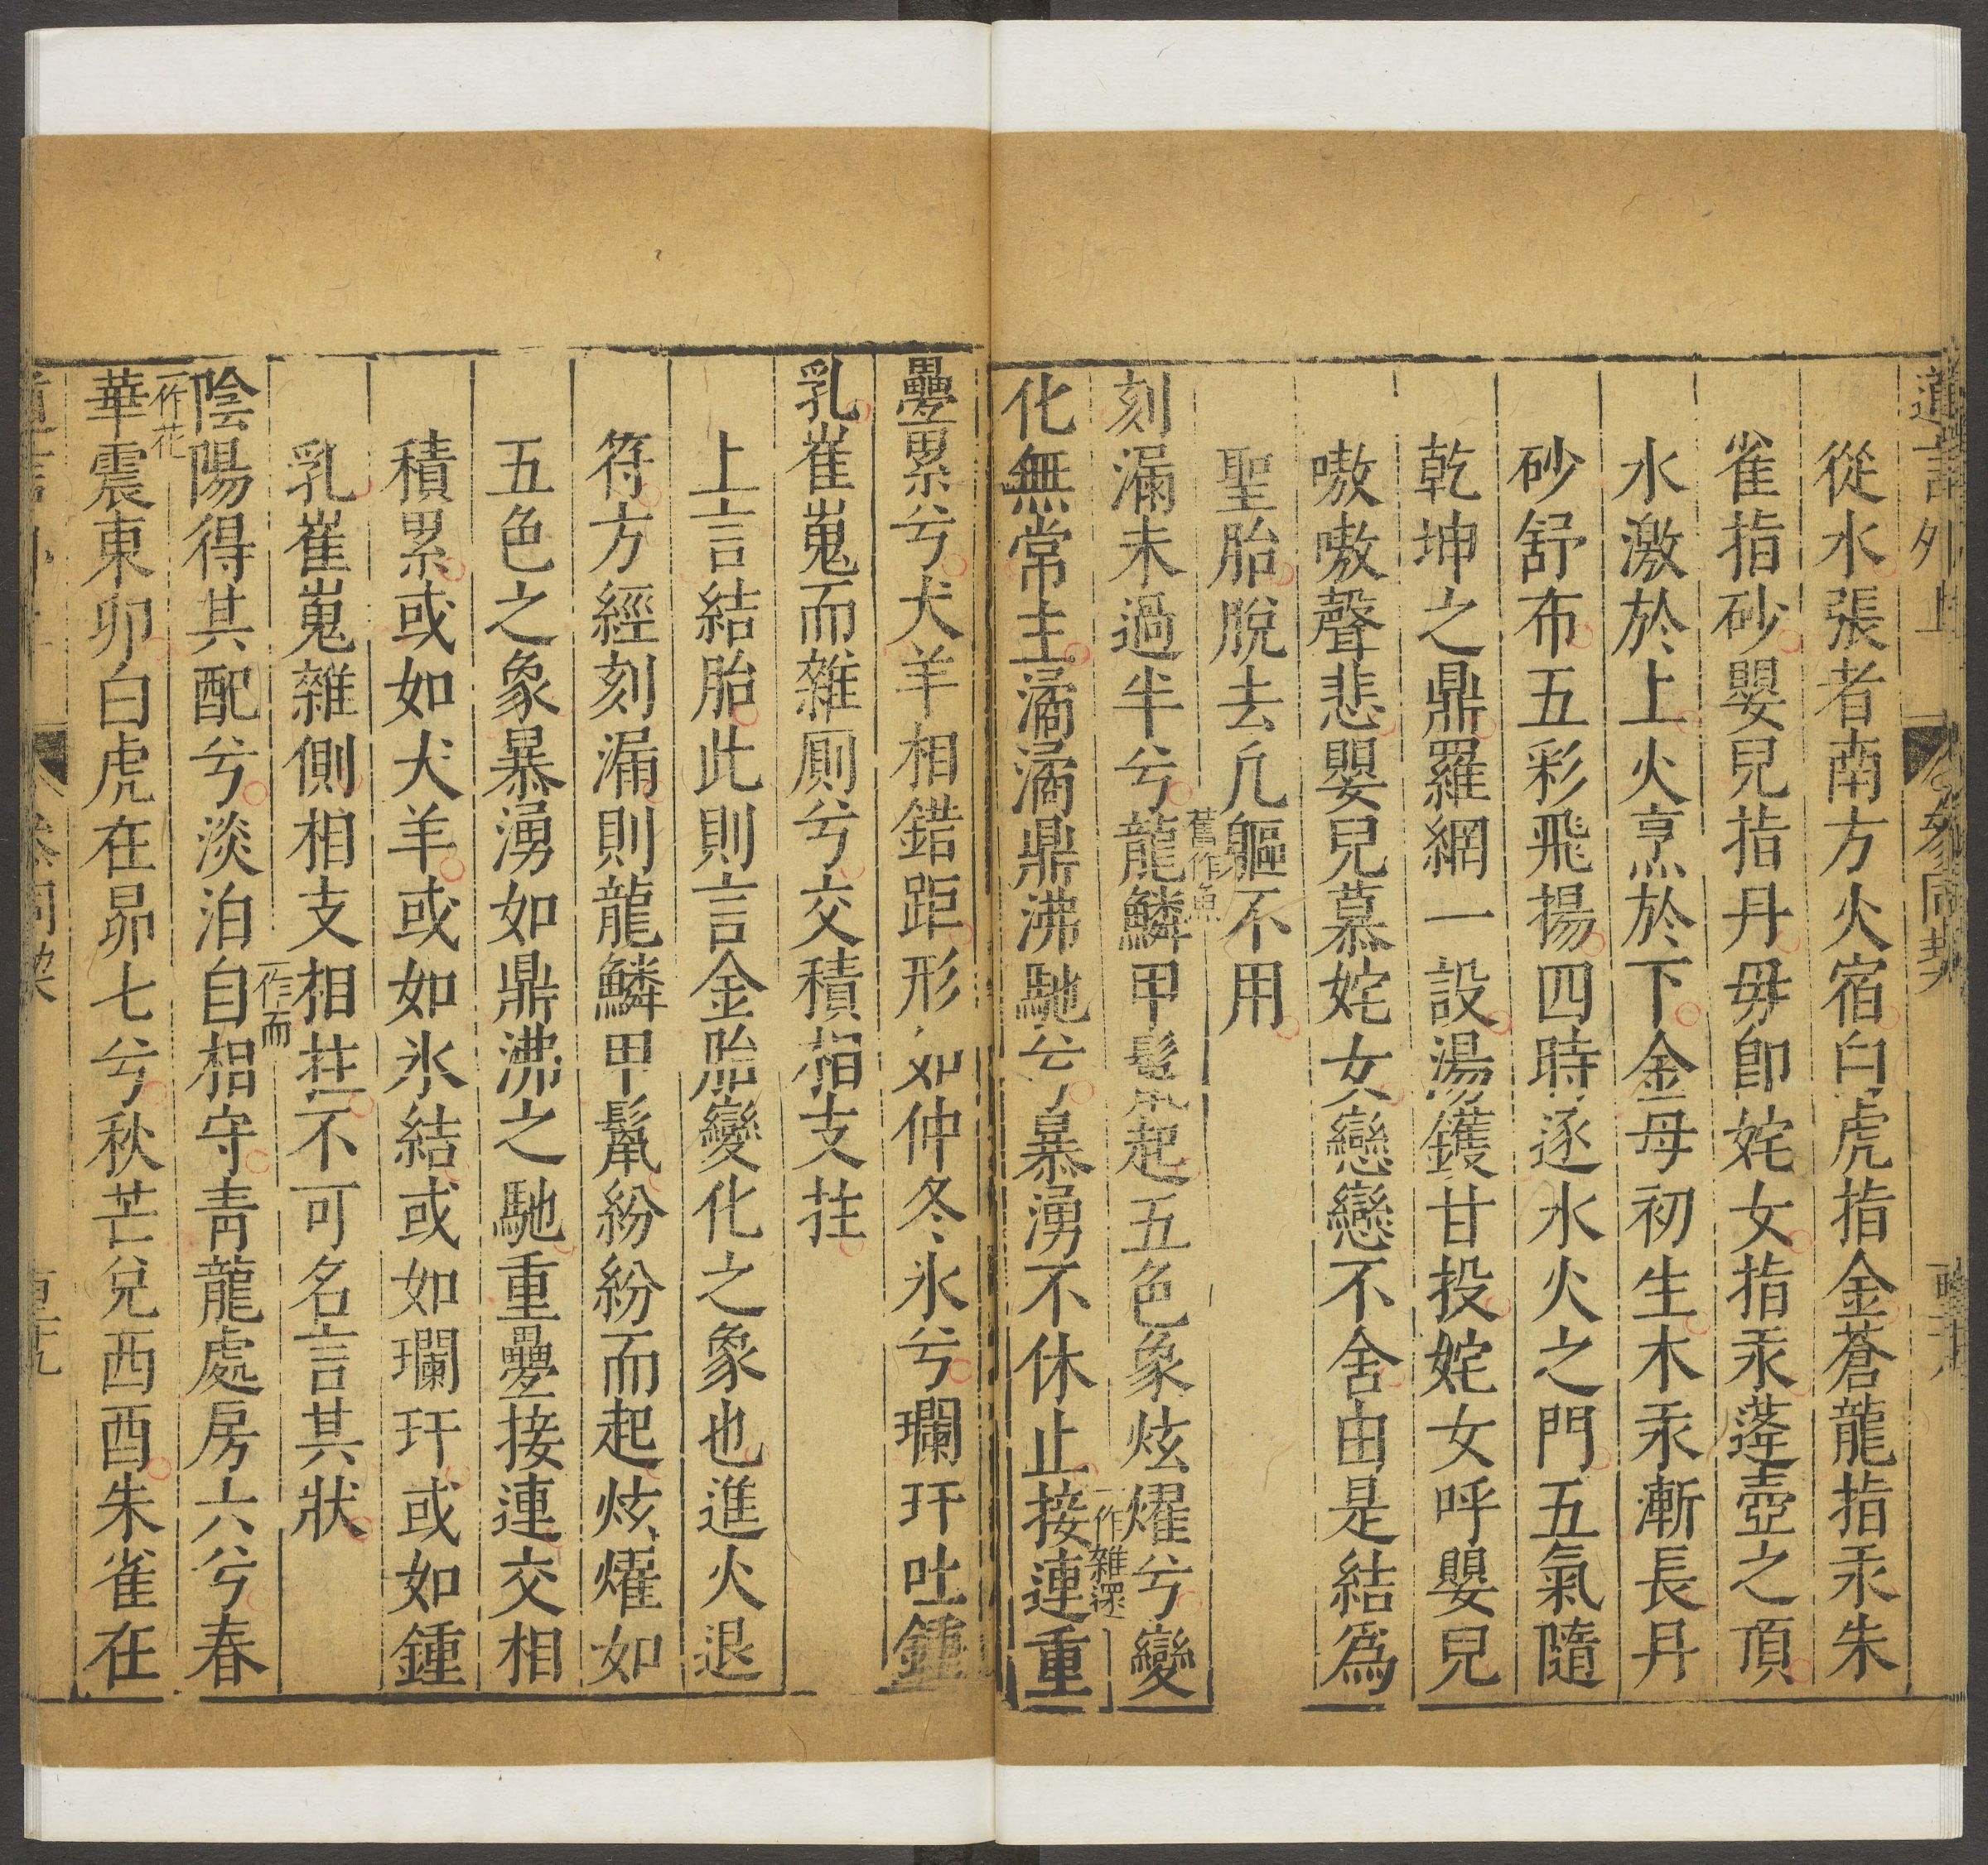 道言外上
參同契
從水張者南方火宿白虎指金蒼龍指汞朱
雀指砂嬰兒指丹毋卽姹女指汞蓬壺之頂
水激於上火烹於下金母初生木汞漸長丹
砂舒布五彩飛揚四時逐水火之門五氣隨
乾坤之鼎羅網一設湯鑊甘投姹女呼嬰兒
嗷嗷聲悲嬰兒慕姹女戀戀不舍由是結爲
聖胎脫去凡軀不用
舊作魚
刻漏未過半兮龍鱗甲鬣起五色象炫燿兮變
一作雜遝
化無常主滿滿鼎沸馳兮暴湧不休止接連重
疊累兮犬羊相錯距形如仲冬氷兮瓓玕吐鍾
乳崔嵬而雜厠兮交積相支拄
上言結胎此則言金胎變化之象也進火退
符方經刻漏則龍鱗甲鬣紛紛而起炫燿如
五色之象暴湧如鼎沸之馳重疊接連交相
積累或如犬羊或如氷結或如瓓玕或如鍾
乳崔嵬雜側相支相拄不可名言其狀
一作而
陰陽得其配兮淡泊自相守靑龍處房六兮春
一作花
華震東卯白虎在昴七兮秋芒兌西酉朱雀在